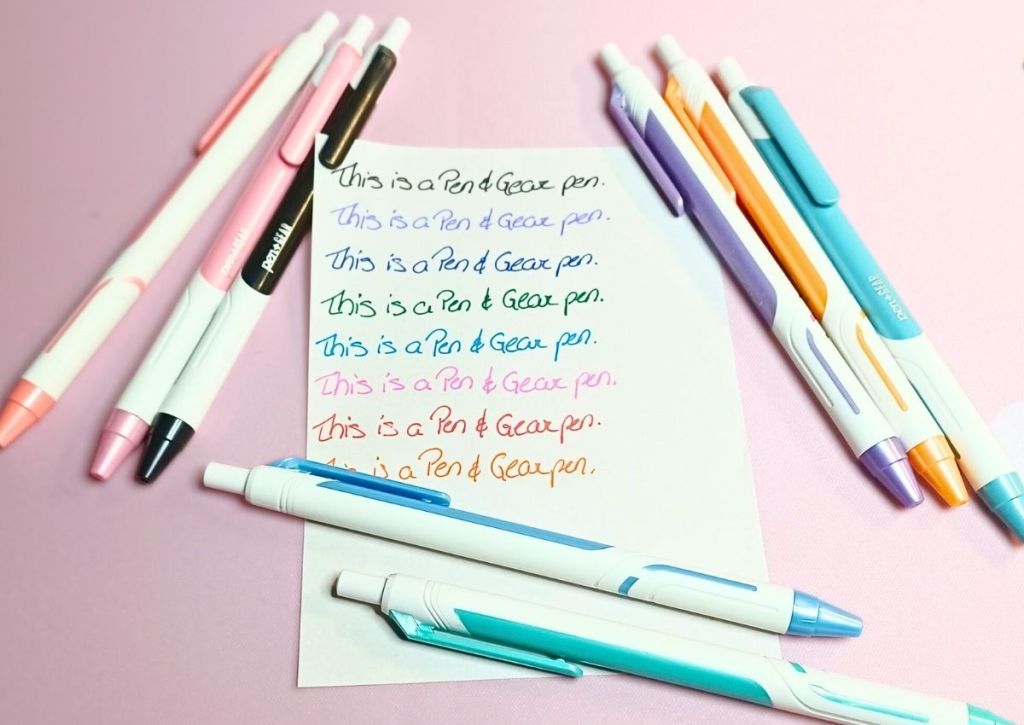 This is a Pen & Gear pen.
This is a Pen & Gear pen.
This is a Pen & Gear pen.
This is a Pen & Gear pen.
This is a Pen & Gear pen.
This is a Pen & Gear pen.
This is a Pen & Gear pen.
is a Pen & Gear pen.
pen+GEAR
pen+GEAR
pen+GEAR